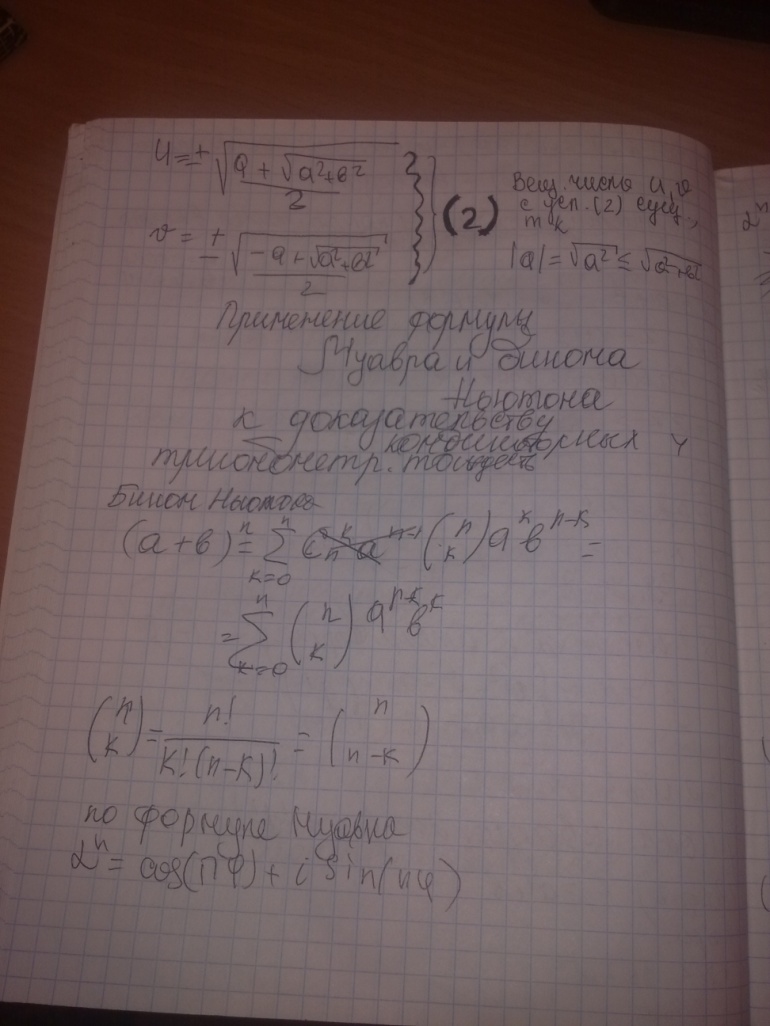 u = ± √((a + √(a²+b²))/2)
v = ± √((-a + √(a²+b²))/2)
(2)
Вещ. числа u, v
с усл. (2) сущ.,
т к
|a| = √a² ≤ √(a²+b²)
Применение формулы
Муавра и бинома
Ньютона
к доказательству
комбинаторных и
тригонометр. тождеств
Бином Ньютона
(a+b)ⁿ = ∑ₖ₌₀ⁿ (n k) aᵏ bⁿ⁻ᵏ =
= ∑ₖ₌₀ⁿ (n k) aⁿ⁻ᵏ bᵏ
(n k) = n! / (k!(n-k)!) = (n n-k)
по формуле Муавра
αⁿ = cos(nφ) + i sin(nφ)
αⁿ